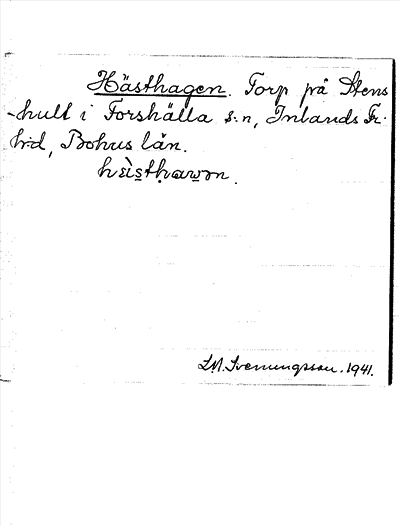 Hästhagen. Torp på Stens
-hult i Forshälla s:n, Inlands Fr.
h:d, Bohus län.
hɛ̀i̯sthaɯɔn.
L.M. Svenungsson. 1941.